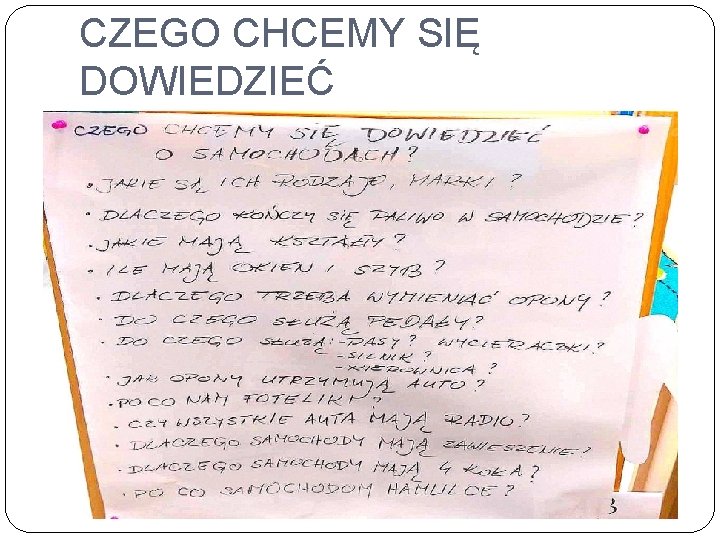 CZEGO CHCEMY SIĘ
DOWIEDZIEĆ
CZEGO CHCEMY SIĘ DOWIEDZIEĆ
O SAMOCHODACH?
• JAKIE SĄ ICH RODZAJE, MARKI?
• DLACZEGO KOŃCZY SIĘ PALIWO W SAMOCHODZIE?
• JAKIE MAJĄ KSZTAŁTY?
• ILE MAJĄ OKIEN I SZYB?
• DLACZEGO TRZEBA WYMIENIAĆ OPONY?
• DO CZEGO SŁUŻĄ PEDAŁY?
• DO CZEGO SŁUŻĄ: - PASY? WYCIERACZKI?
- SILNIK?
- KIEROWNICA?
• JAK OPONY UTRZYMUJĄ AUTO?
• PO CO NAM FOTELIKI?
• CZY WSZYSTKIE AUTA MAJĄ RADIO?
• DLACZEGO SAMOCHODY MAJĄ ZAWIESZENIE?
• DLACZEGO SAMOCHODY MAJĄ 4 KOŁA?
• PO CO SAMOCHODOM HAMULCE?
3